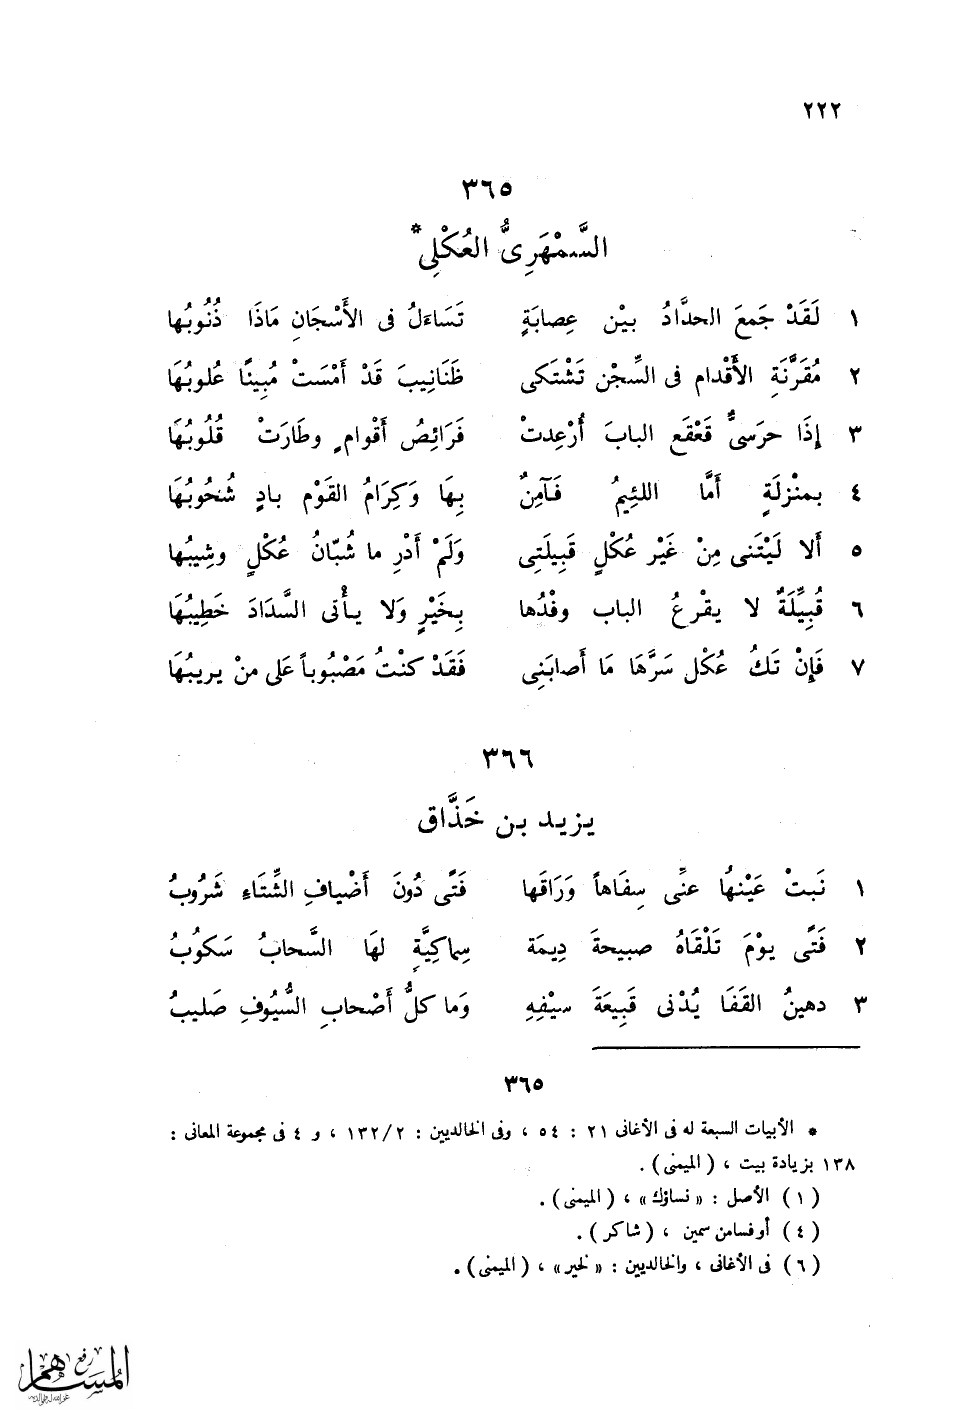 ٢٢٢
٣٦٥
السَّمْهَرِىُّ العُكْلِى*
١ لَقَدْ جَمعَ الحدَّادُ بيْن عِصابَةٍ تَسَاءَلُ فى الأَسْجَانِ مَاذَا ذُنُوبُها
٢ مُقَرَّنَةِ الأَقْدام فى السِّجْن تَشْتَكى ظَنَانِيبَ قَدْ أَمْسَتْ مُبِينًا عُلوبُهَا
٣ إِذَا حرَسىٌّ قَعْقَع البابَ أُرْعِدتْ فَرَائِصُ أَقْوامٍ وطَارَتْ قُلُوبُهَا
٤ بمنْزِلَةٍ أَمَّا اللئِيمُ فَآمِنٌ بِهَا وَكِرَامُ القَوْم بادٍ شُحُوبُهَا
٥ أَلا لَيْتَنى مِنْ غَيْر عُكْلٍ قَبِيلَتِى وَلَمْ أَدْرِ ما شُبّانُ عُكْلٍ وشِيبُها
٦ قُبِيِّلَةٌ لا يقْرعُ الباب وفْدُها بِخَيْرٍ وَلا يأْتى السَّدَادَ خَطِيبُهَا
٧ فَإِنْ تَكُ عُكْل سَرَّهَا مَا أَصابَنِى فَقَدْ كنْتُ مَصْبُوباً عَلى منْ يريبُهَا
٣٦٦
يزيد بن خَذَّاق
١ نَبتْ عَيْنهُا عنِّى سِفَاهاً وَرَاقَها فَتًى دُونَ أَضْيافِ الشِّتَاءِ شَرُوبُ
٢ فَتًى يوْمَ تَلْقَاهُ صبيحةَ دِيمَة سِماكِيَّةٍ لهَا السَّحابُ سَكوُبُ
٣ دهينُ القَفَا يُدْنى قَبِيعَةَ سيْفِهِ وَما كلُّ أَصْحابِ السُّيُوفِ صَليبُ
٣٦٥
* الأبيات السبعة له فى الأغانى ٢١ : ٥٤ ، وفى الخالديين : ١٣٢/٢ ، و ٤ فى مجموعة المعانى :
١٣٨ بزيادة بيت ، ( الميمنى ) .
( ١ ) الأصل : « نساؤك » ، ( الميمنى ) .
( ٤ ) أو فسامن سمين ، ( شاكر ) .
( ٦ ) فى الأغانى ، والخالديين : « لخير » ، ( الميمنى ) .
رفع
المساهم
غفر الله له ولوالديه